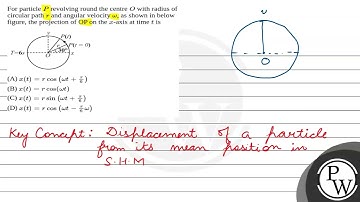 For particle P revolving round the centre O with radius of
circular path r and angular velocity ω, as shown in below
figure, the projection of OP on the x-axis at time t is
y
P(t)
P(t = 0)
T=6s
30°
x
O
(A) x(t) = r cos (ωt + π/6)
(B) x(t) = r cos(ωt)
(C) x(t) = r sin (ωt + π/6)
(D) x(t) = r cos (ωt − π/6 ω)
O
Key Concept: Displacement of a particle
from its mean position in
S.H.M
PW